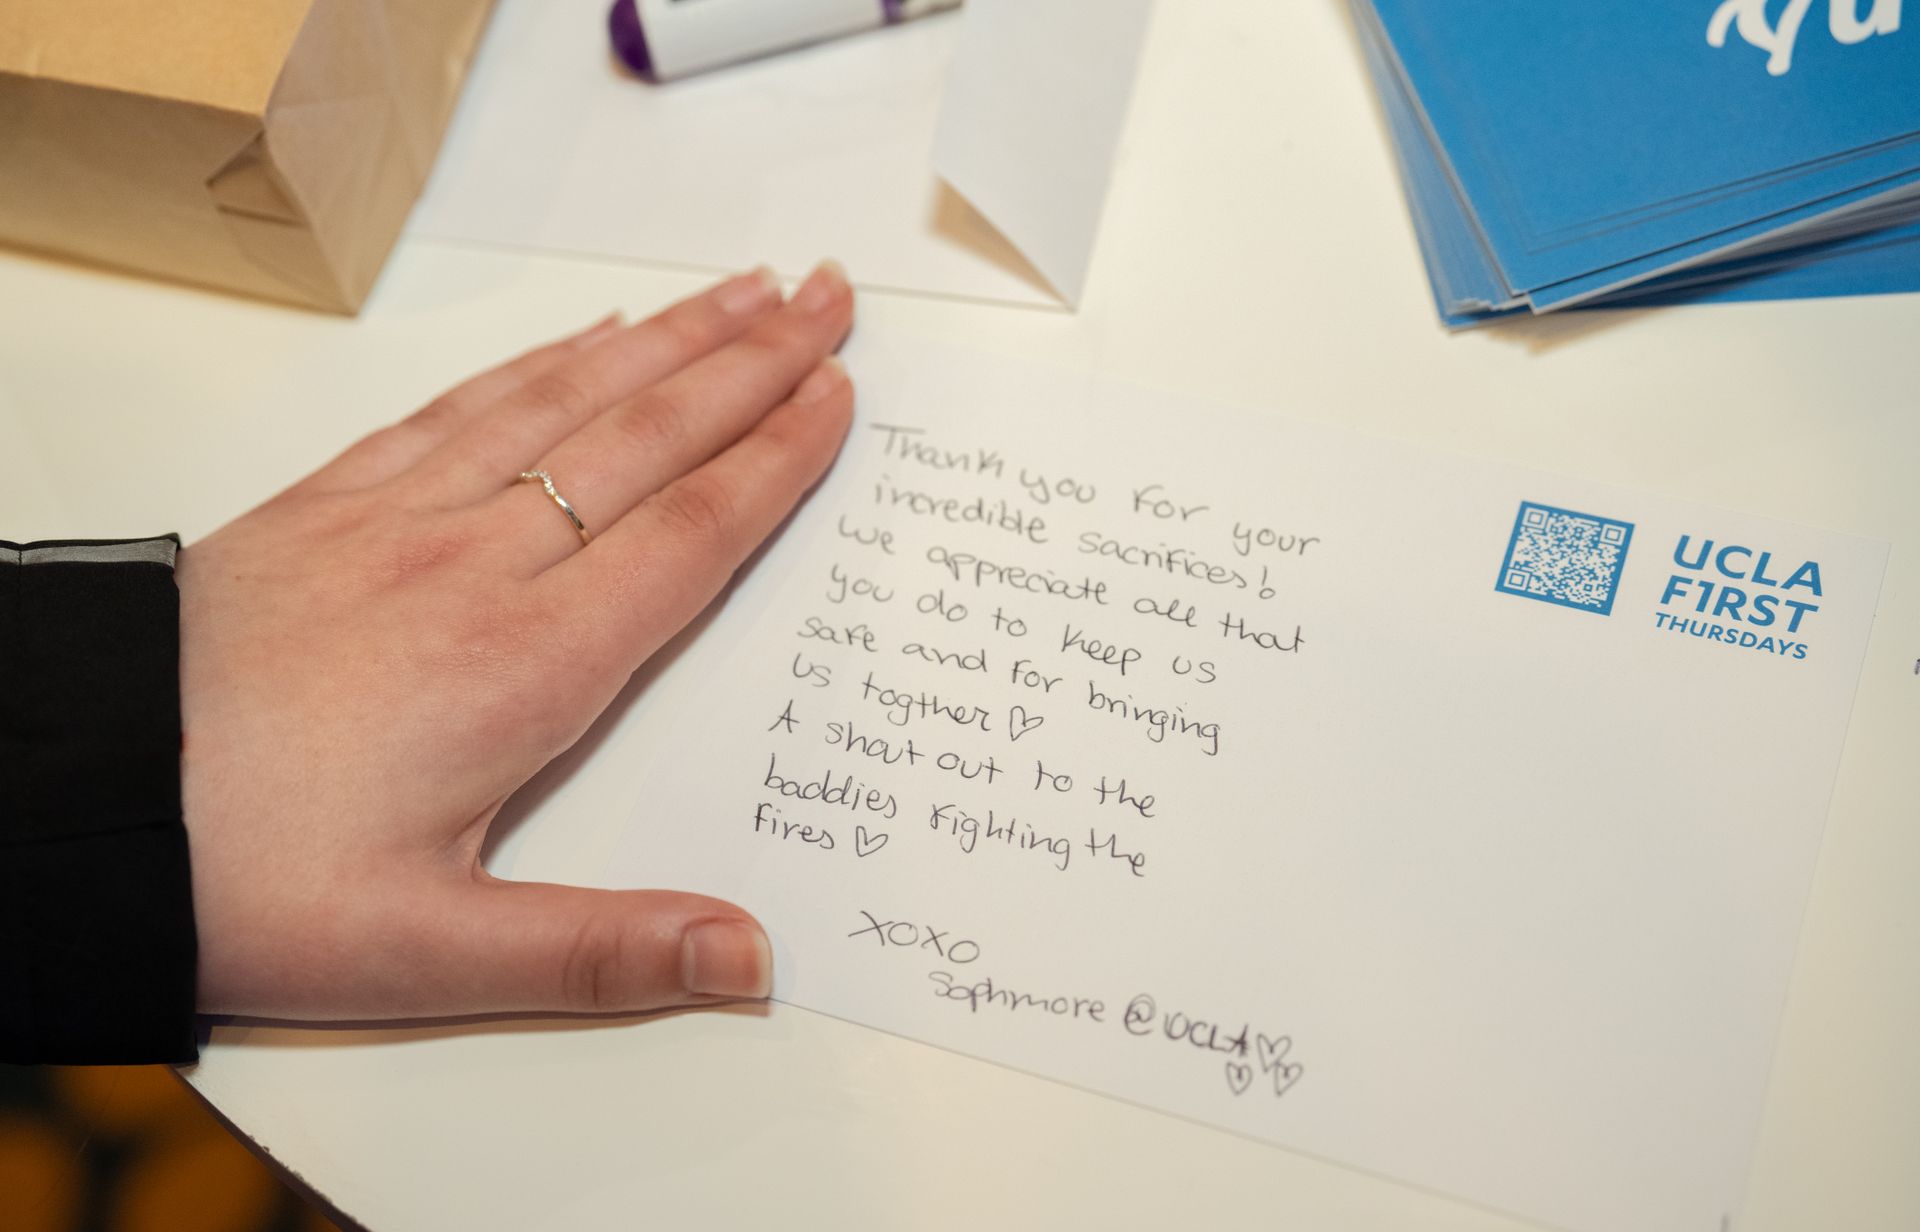 Thank you for your
incredible sacrifices!
we appreciate all that
you do to keep us
safe and for bringing
us togther ♡
A shout out to the
baddies fighting the
fires ♡
XOXO
Sophmore @UCLA ♡♡♡
UCLA
F1RST
THURSDAYS